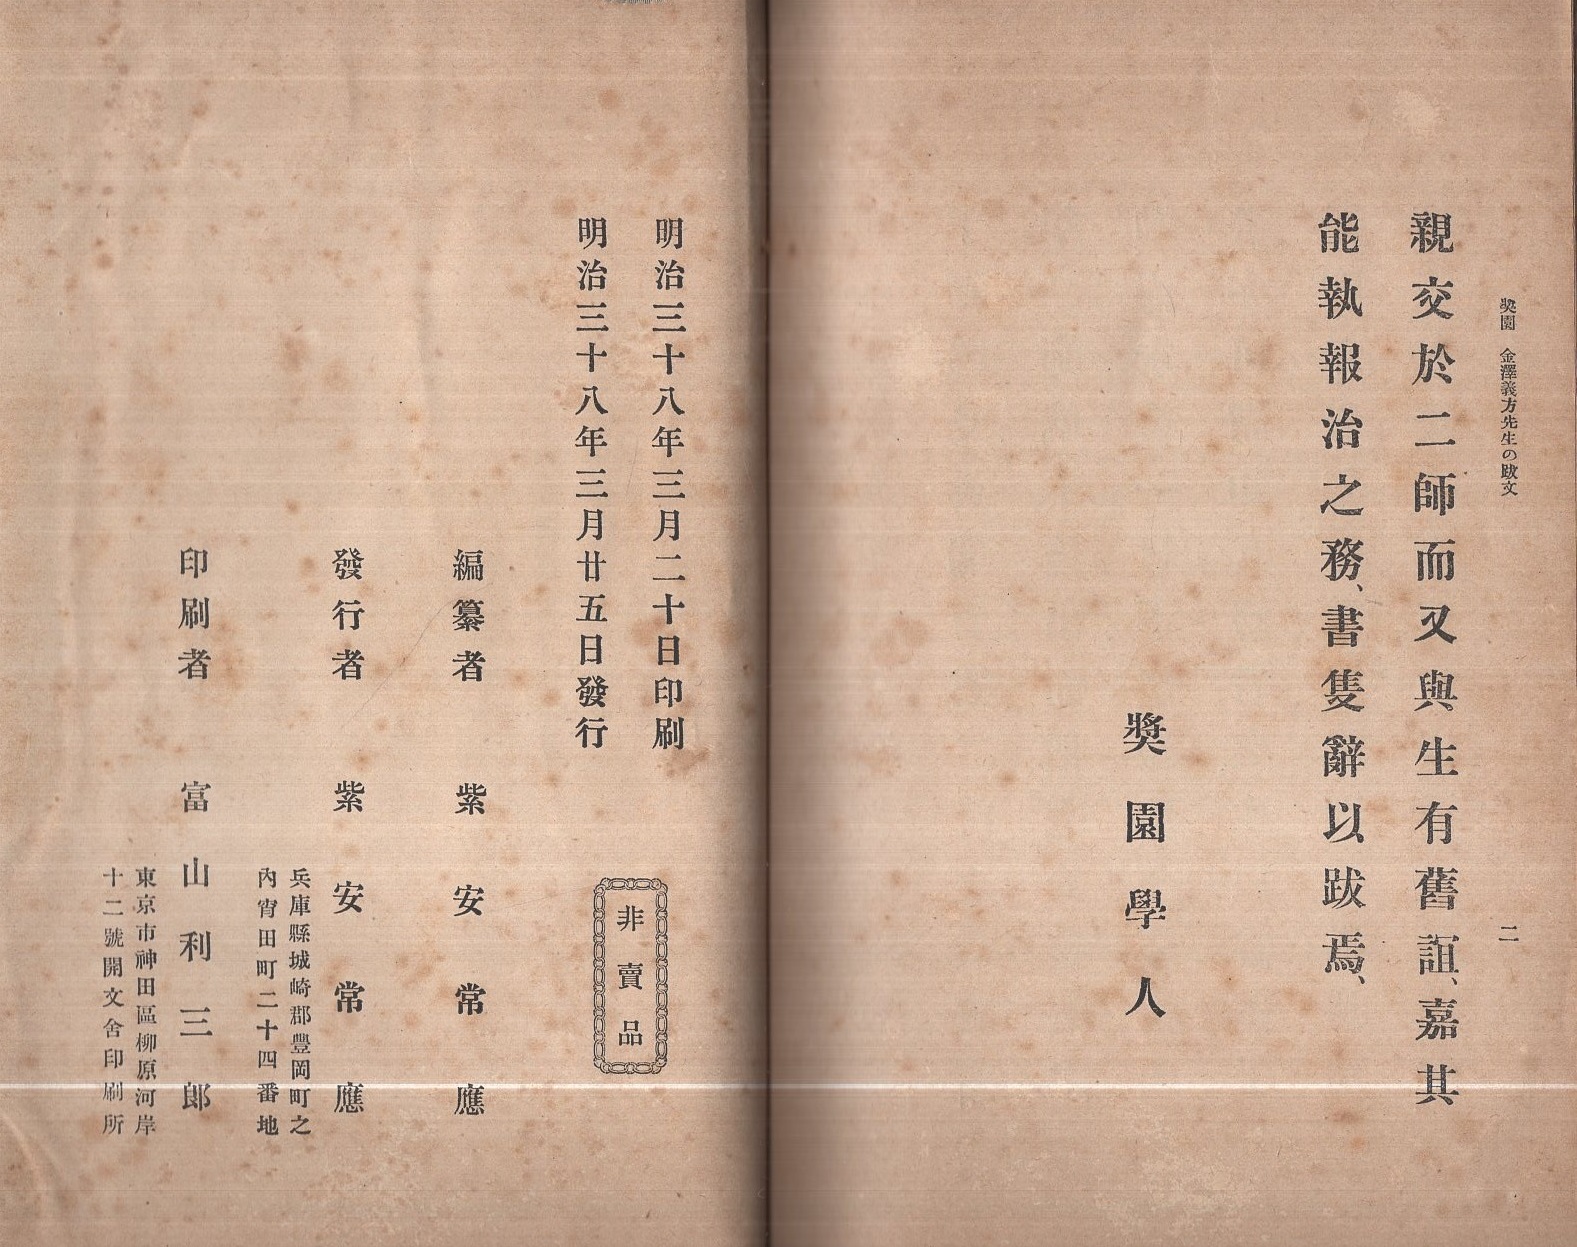 奬園 金澤義方先生の跋文
二
親交於二師而又與生有舊誼、嘉其
能執報治之務、書隻辭以跋焉、
奬園學人
明治三十八年三月二十日印刷
明治三十八年三月廿五日發行
非賣品
編纂者 紫安常應
發行者 紫安常應
兵庫縣城崎郡豐岡町之
內宵田町二十四番地
印刷者 富山利三郎
東京市神田區柳原河岸
十二號開文舍印刷所